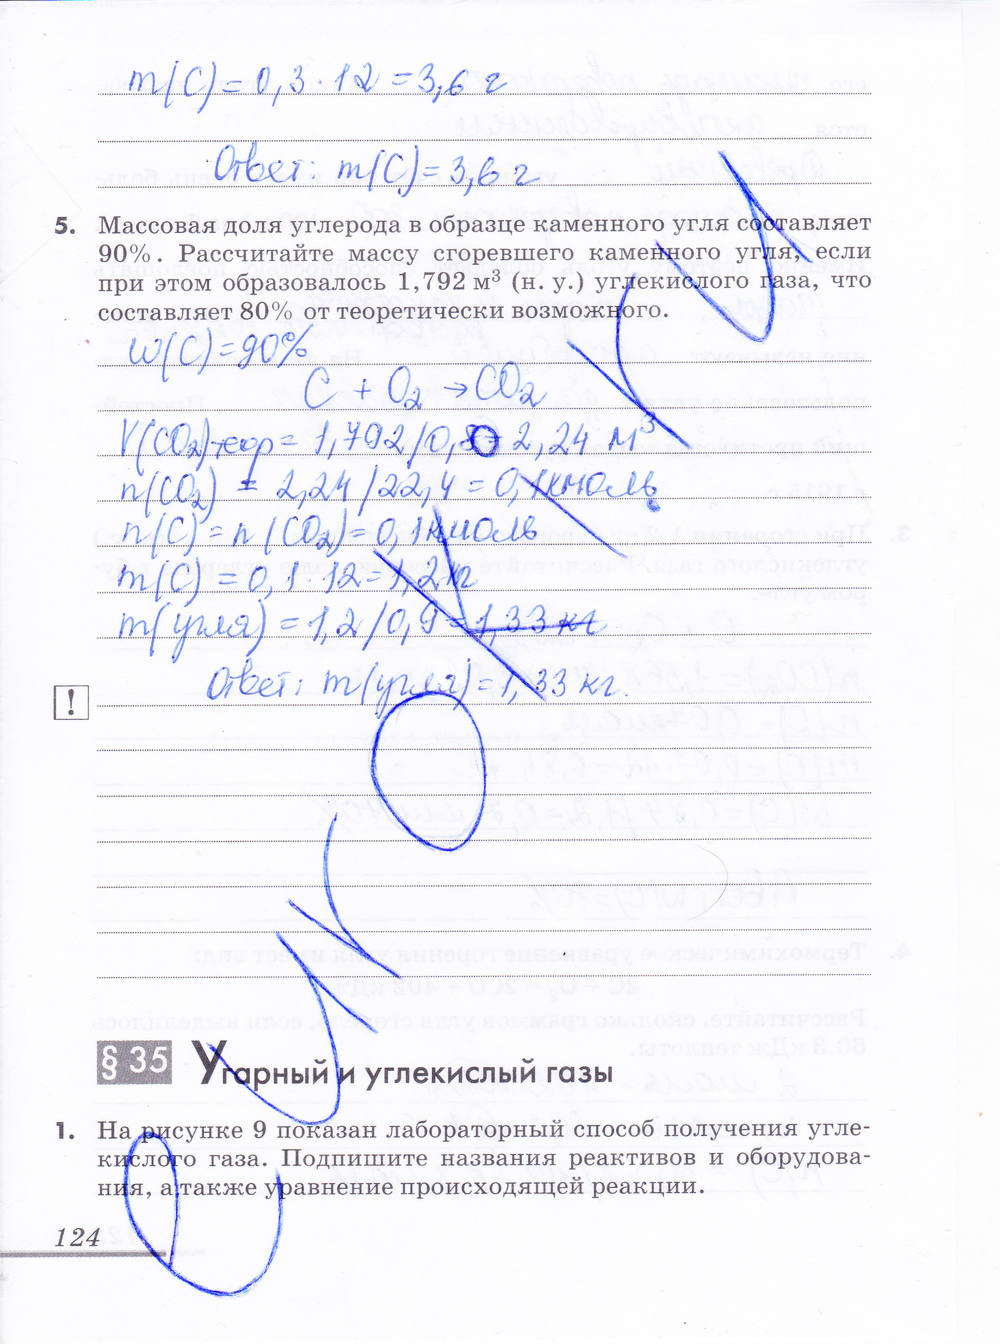 m(C) = 0,3 · 12 = 3,6 г
Ответ: m(C) = 3,6 г
5. Массовая доля углерода в образце каменного угля составляет
90%. Рассчитайте массу сгоревшего каменного угля, если
при этом образовалось 1,792 м³ (н. у.) углекислого газа, что
составляет 80% от теоретически возможного.
W(C) = 90%
C + O₂ → CO₂
V(CO₂)теор = 1,792/0,8 = 2,24 м³
n(CO₂) = 2,24/22,4 = 0,1 кмоль
n(C) = n(CO₂) = 0,1 кмоль
m(C) = 0,1 · 12 = 1,2 кг
m(угля) = 1,2/0,9 = 1,33 кг
Ответ: m(угля) = 1,33 кг.
!
§ 35 Угарный и углекислый газы
1. На рисунке 9 показан лабораторный способ получения угле-
кислого газа. Подпишите названия реактивов и оборудова-
ния, а также уравнение происходящей реакции.
124